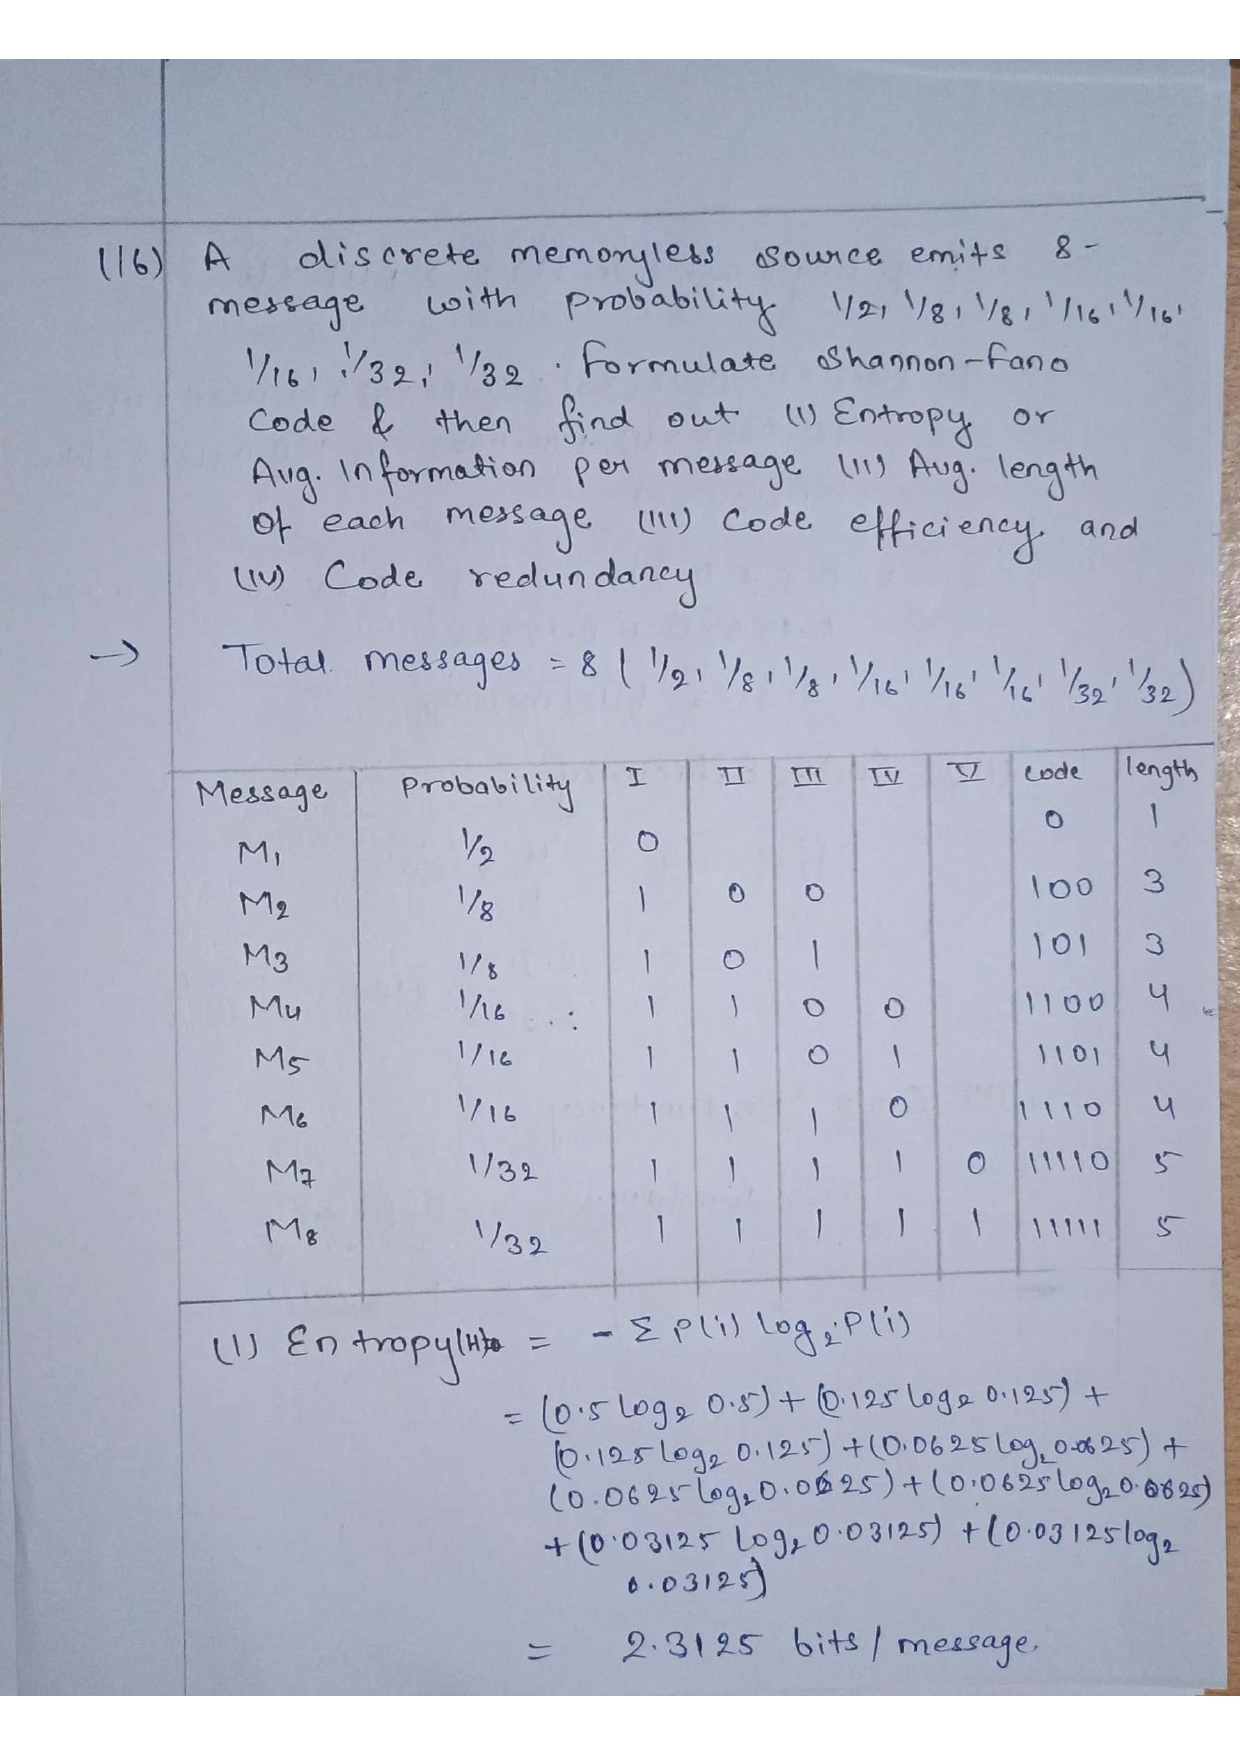 (16) A discrete memoryless source emits 8-
message with probability 1/2, 1/8, 1/8, 1/16, 1/16,
1/16, 1/32, 1/32. Formulate Shannon-Fano
Code & then find out (I) Entropy or
Avg. Information per message (II) Avg. length
of each message (III) Code efficiency and
(IV) Code redundancy
→ Total messages = 8 (1/2, 1/8, 1/8, 1/16, 1/16, 1/16, 1/32, 1/32)
Message Probability I II III IV V code length
M1 1/2 0 0 1
M2 1/8 1 0 0 100 3
M3 1/8 1 0 1 101 3
M4 1/16 1 1 0 0 1100 4
M5 1/16 1 1 0 1 1101 4
M6 1/16 1 1 1 0 1110 4
M7 1/32 1 1 1 1 0 11110 5
M8 1/32 1 1 1 1 1 11111 5
(I) Entropy(H) = - Σ P(i) log₂ P(i)
= (0.5 log₂ 0.5) + (0.125 log₂ 0.125) +
(0.125 log₂ 0.125) + (0.0625 log₂ 0.0625) +
(0.0625 log₂ 0.0625) + (0.0625 log₂ 0.0625)
+ (0.03125 log₂ 0.03125) + (0.03125 log₂
0.03125)
= 2.3125 bits / message.